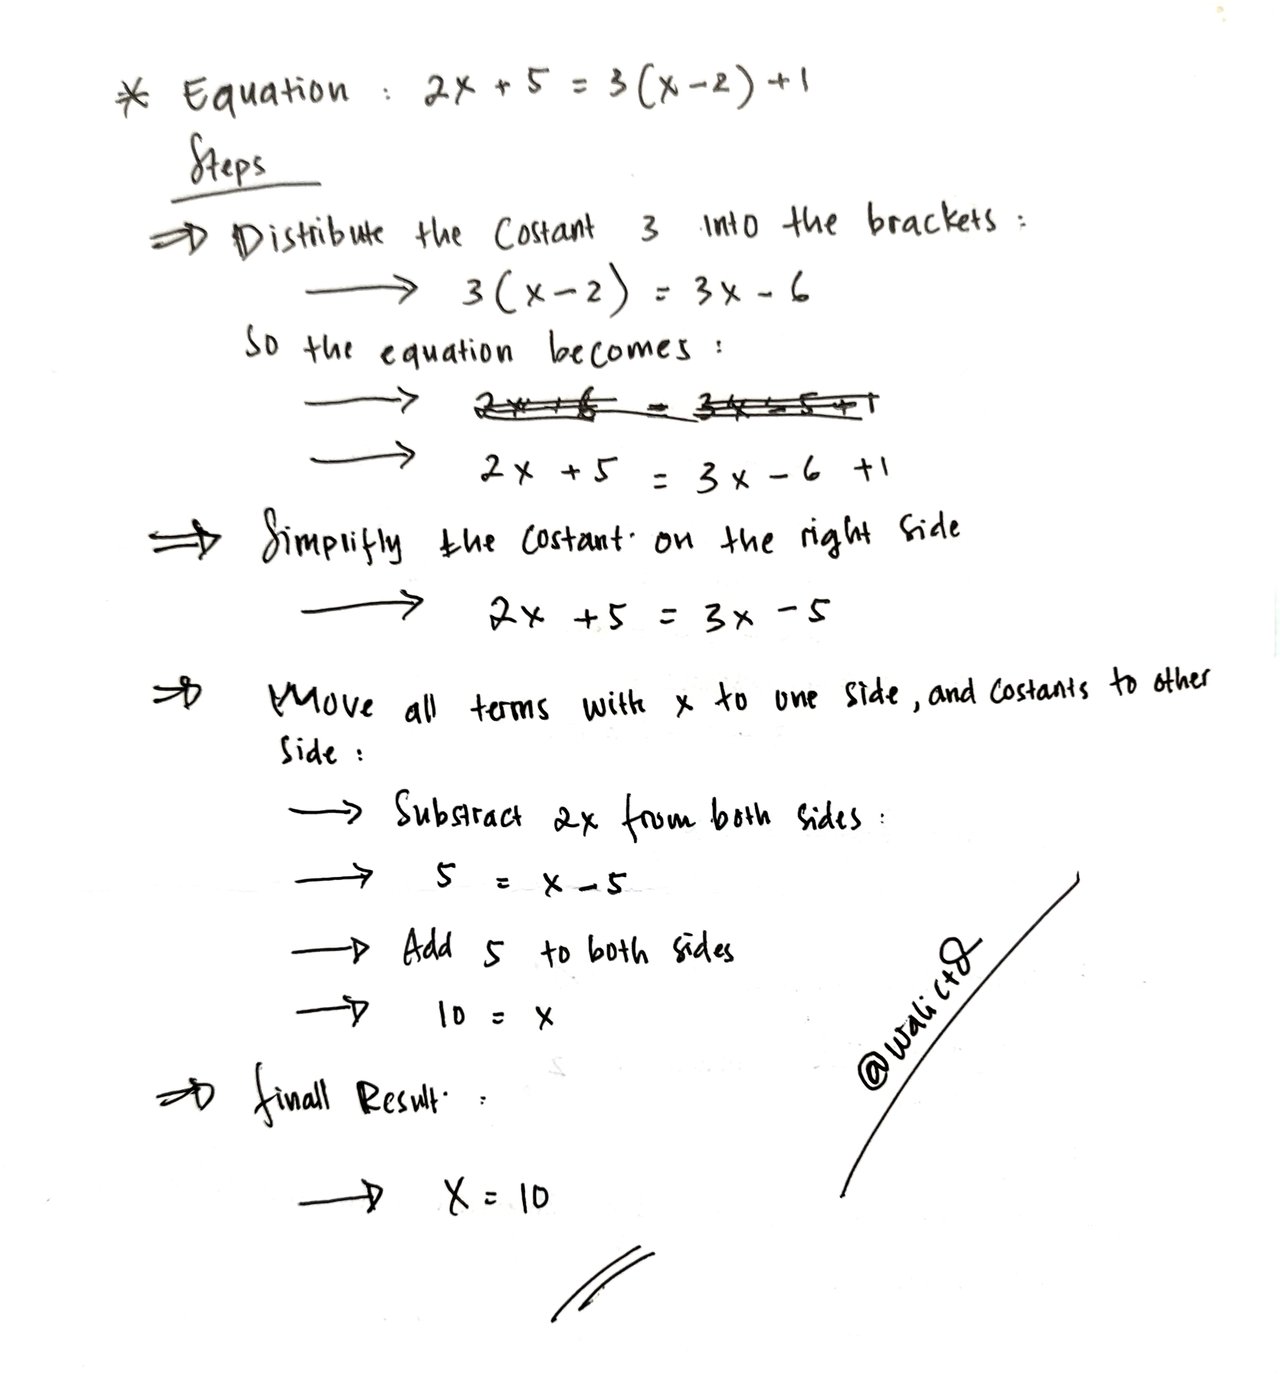 * Equation : 2x + 5 = 3(x-2) + 1
Steps
⇒ Distribute the Costant 3 into the brackets :
→ 3(x-2) = 3x - 6
So the equation becomes :
→
→ 2x + 5 = 3x - 6 + 1
⇒ Simplifly the Costant on the right side
→ 2x + 5 = 3x - 5
⇒ Move all terms with x to one side, and Costants to other
side :
→ Substract 2x from both sides :
→ 5 = x - 5
→ Add 5 to both sides
→ 10 = x
⇒ finall Result :
→ X = 10
@walictd